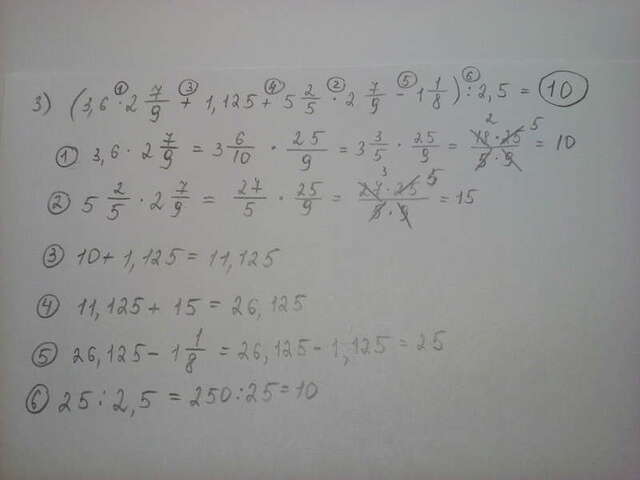 3) (3,6 · 2 7/9 + 1,125 + 5 2/5 · 2 7/9 - 1 1/8) : 2,5 = 10
① ③ ④ ② ⑤ ⑥
① 3,6 · 2 7/9 = 3 6/10 · 25/9 = 3 3/5 · 25/9 = 18·25/5·9 = 10
2 5
② 5 2/5 · 2 7/9 = 27/5 · 25/9 = 27·25/5·9 = 15
3 5
③ 10 + 1,125 = 11,125
④ 11,125 + 15 = 26,125
⑤ 26,125 - 1 1/8 = 26,125 - 1,125 = 25
⑥ 25 : 2,5 = 250 : 25 = 10